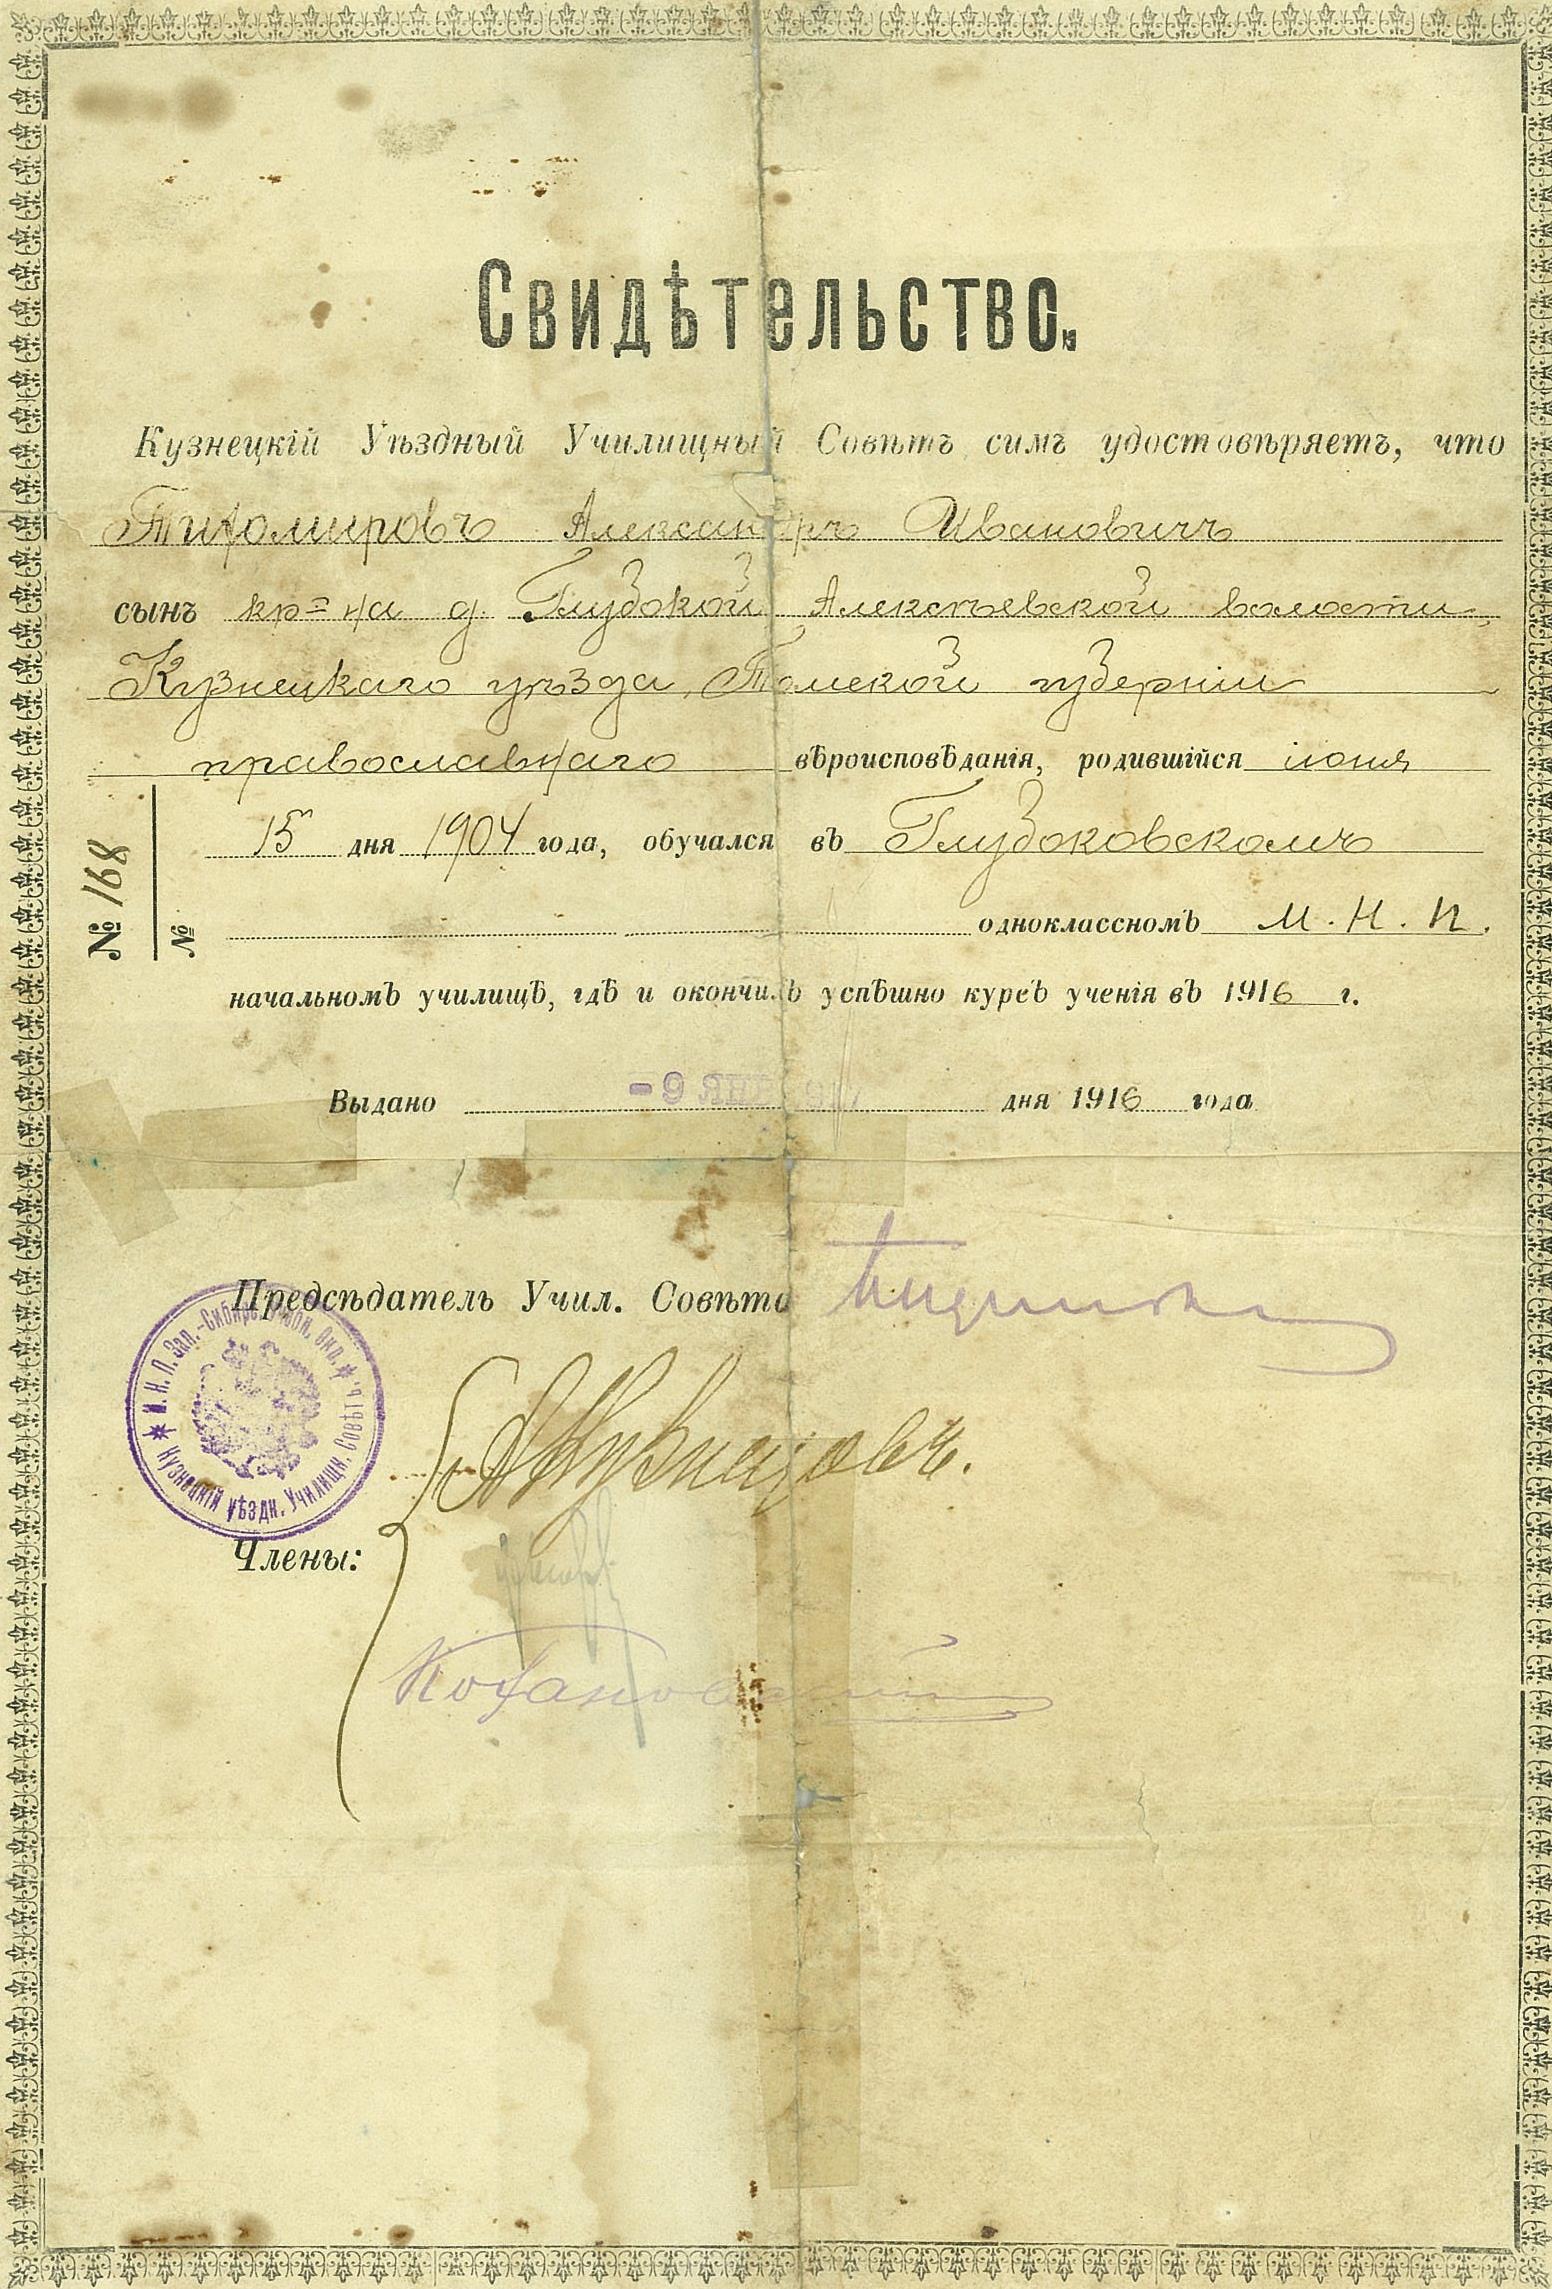 Свидѣтельство.
Кузнецкій Уѣздный Училищный Совѣтъ симъ удостовѣряетъ, что
Тихомировъ Александръ Ивановичъ
сынъ кр=на д. Глубокой Алексѣевской волости,
Кузнецкаго уѣзда, Томской губерніи
православнаго вѣроисповѣданія, родившійся іюня
15 дня 1904 года, обучался въ Глубоковскомъ
№ 168
№
одноклассномъ М. Н. П.
начальномъ училищѣ, гдѣ и окончилъ успѣшно курсъ ученія въ 1916 г.
Выдано -9 ЯНВ 1917 дня 1916 года
Предсѣдатель Учил. Совѣта
М. Н. П. Зап.-Сибирс. Учебн. Окр.
Кузнецкій уѣздн. Училищн. Совѣтъ
А Кузнецовъ.
Члены:
Кохановскій